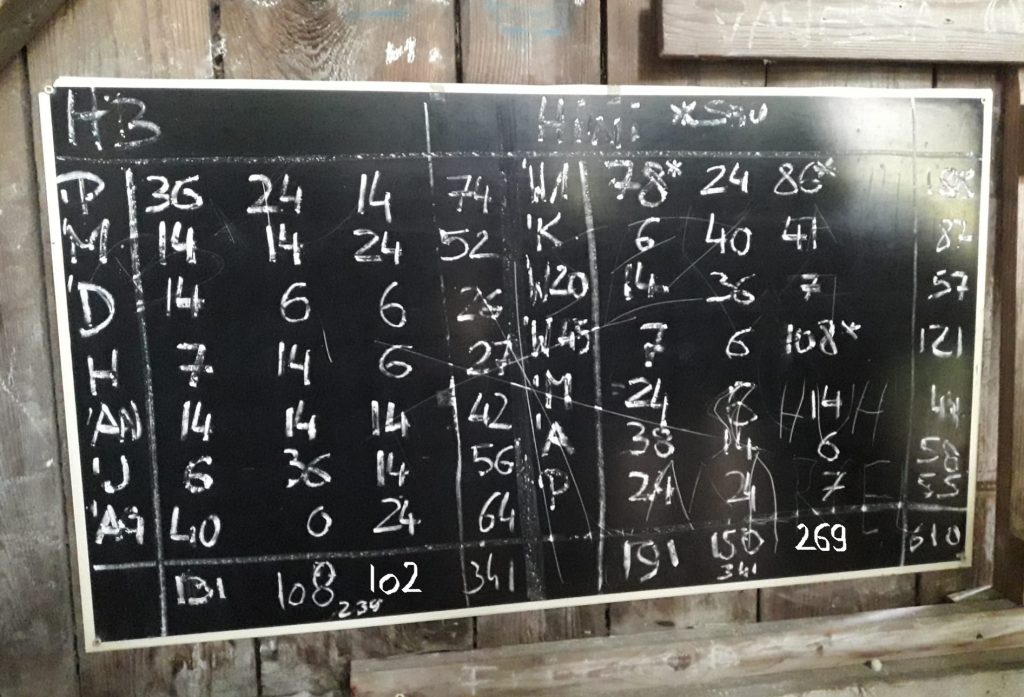 HB Hini *Sau
P 36 24 14 74 78* 24 86* 188
'M 14 14 24 52 'K 6 40 41 87
'D 14 6 6 26 W20 14 36 7 57
H 7 14 6 27 W45 7 6 108* 121
'AN 14 14 14 42 'M 24 6 14 44
'J 6 36 14 56 'A 38 14 6 58
40 0 24 64 'P 24 24 7 55
131 108 102 341 191 150 269 610
239 341